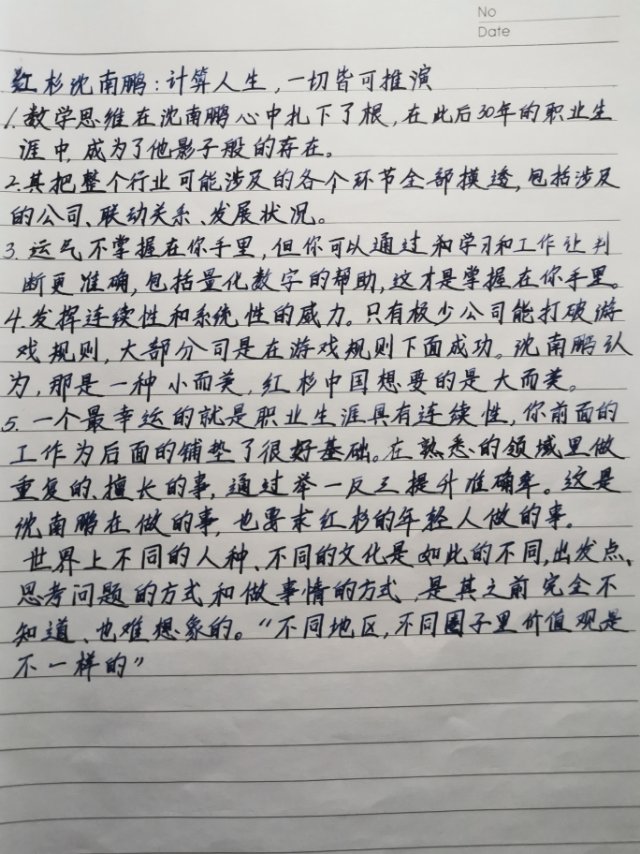 No
Date
红杉沈南鹏:计算人生,一切皆可推演
1.数学思维在沈南鹏心中扎下了根,在此后30年的职业生
涯中,成为了他影子般的存在。
2.其把整个行业可能涉及的各个环节全部摸透,包括涉及
的公司、联动关系、发展状况。
3.运气不掌握在你手里,但你可以通过和学习和工作让判
断更准确,包括量化数字的帮助,这才是掌握在你手里。
4.发挥连续性和系统性的威力。只有极少公司能打破游
戏规则,大部分司是在游戏规则下面成功。沈南鹏认
为,那是一种小而美,红杉中国想要的是大而美。
5.一个最幸运的就是职业生涯具有连续性,你前面的
工作为后面的铺垫了很好基础。在熟悉的领域里做
重复的、擅长的事,通过举一反三提升准确率。这是
沈南鹏在做的事,也要求红杉的年轻人做的事。
世界上不同的人种、不同的文化是如此的不同,出发点、
思考问题的方式和做事情的方式,是其之前完全不
知道、也难想象的。“不同地区,不同圈子里价值观是
不一样的”